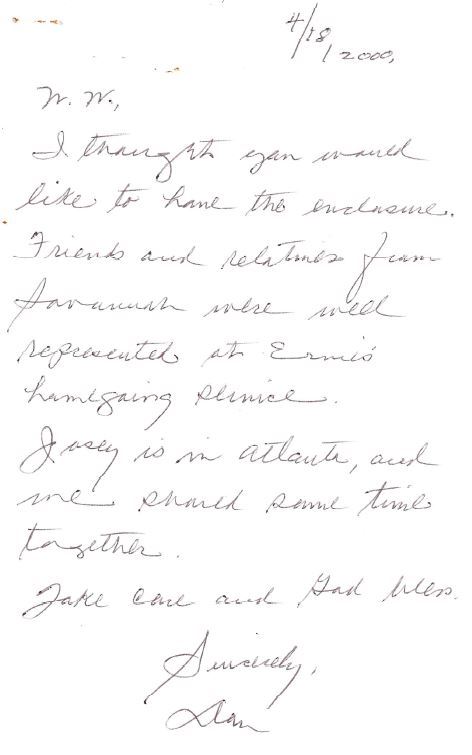 4/18/2000,
W. W.,
I thought you would
like to have the enclosure.
Friends and relatives from
Savannah were well
represented at Ernie's
homegoing service.
Josey is in Atlanta, and
we shared some time
together.
Take care and God bless.
Sincerely,
Dan